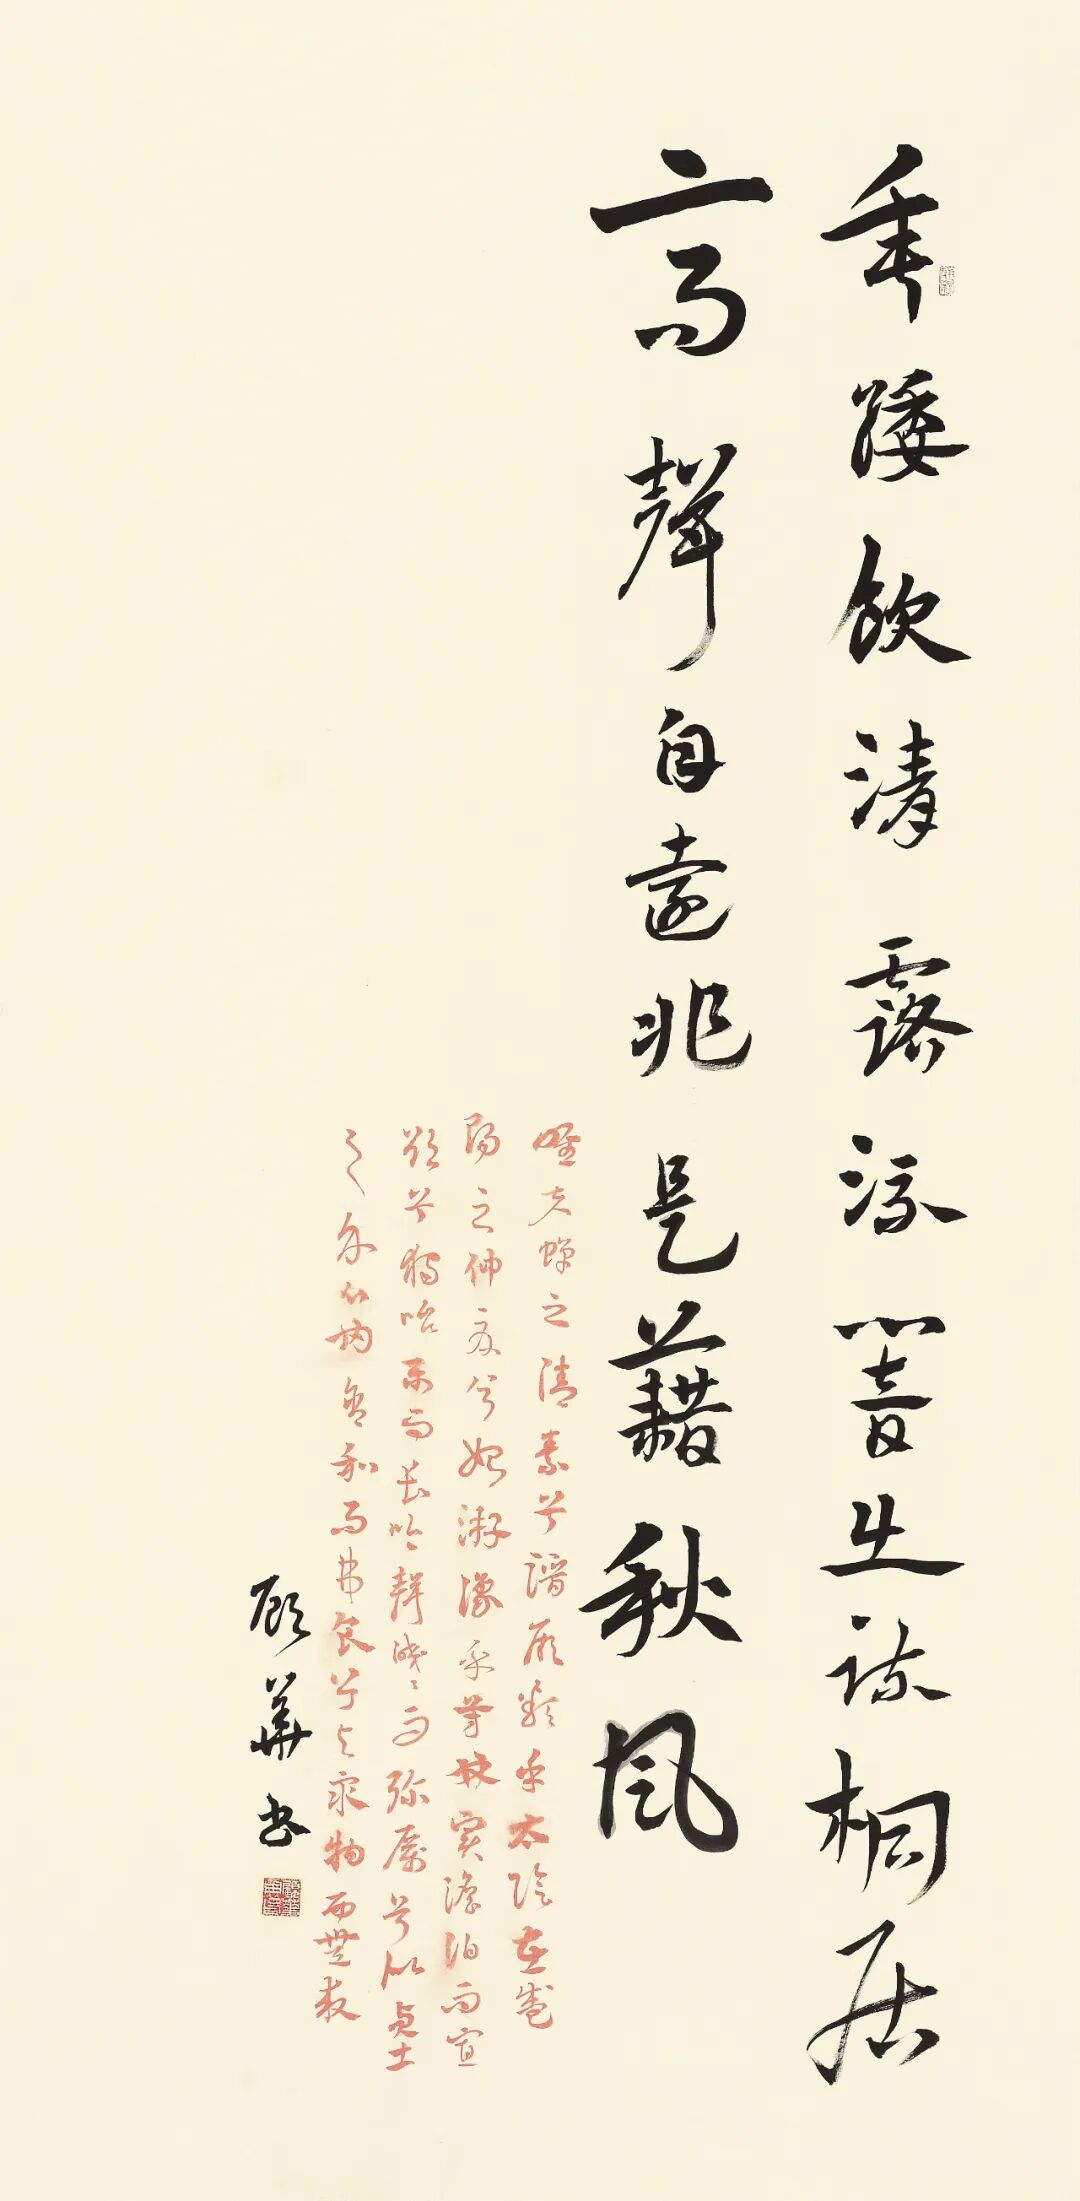 垂緌飲清露流響出疏桐居
高聲自遠非是藉秋風
唯夫蟬之清素兮潛厥類乎太陰在盛
陽之仲夏兮始游豫乎芳林實澹泊而寡
欲兮獨怡樂而長吟聲皦々而彌厲兮似貞士
之介心內含和而弗食兮與眾物而無求
顧華書